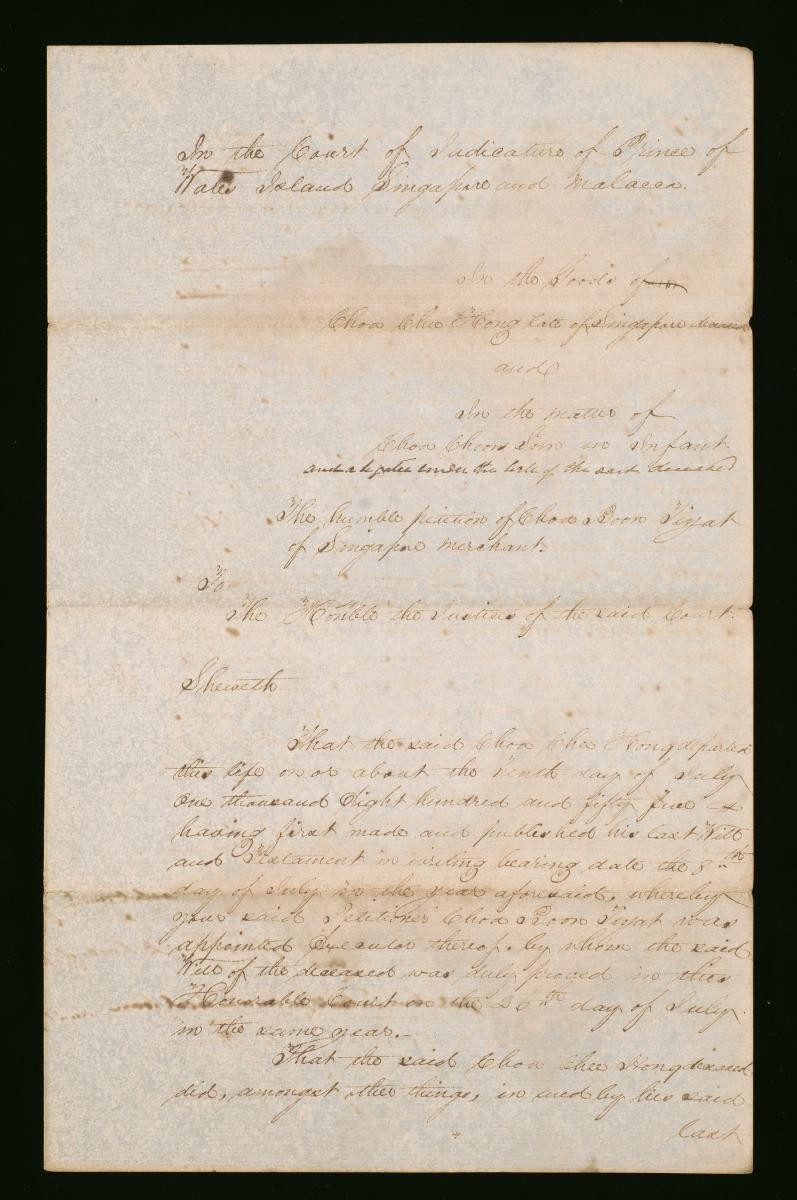 In the Court of Judicature of Prince of
Wales Island Singapore and Malacca.
In the Goods of
Choa Chee Hong late of Singapore deceased
and
In the matter of
Choa Choon Sim an Infant
and a legatee under the will of the said deceased
The humble petition of Choa Boon Tiyat
of Singapore Merchant.
To
The Honble the Justices of the said Court.
Sheweth
That the said Choa Chee Hong departed
this life on or about the Tenth day of July
One thousand Eight hundred and fifty five
having first made and published his last Will
and Testament in writing bearing date the 8th
day of July in the year aforesaid, whereby
your said Petitioner Choa Boon Tiyat was
appointed Executor thereof. by whom the said
Will of the deceased was duly proved in this
Honorable Court on the 26th day of July.
in the same year.-
That the said Choa Chee Hong deceased
did, amongst other things, in and by his said
Last